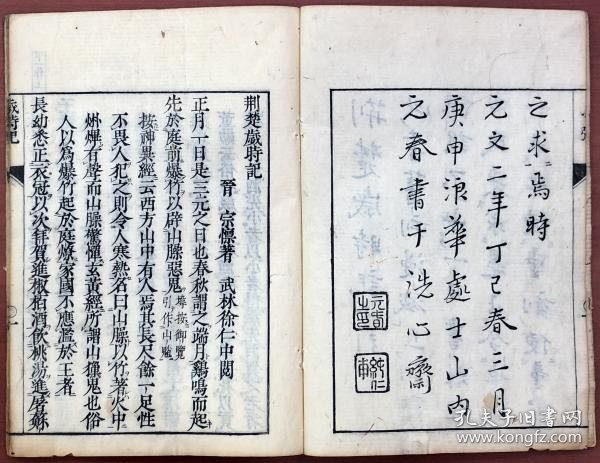 之求焉時
元文二年丁巳春三月
庚申浪華處士山内
元春書于洗心齋
荊楚歲時記
晉 宗懍著 武林徐仁中閱
正月一日是三元之日也春秋謂之端月鷄鳴而起
先於庭前爆竹以辟山臊惡鬼
按神異經云西方山中有人焉其長尺餘一足性
不畏人犯之則令人寒熱名曰山臊以竹著火中
烞熚有聲而山臊驚憚玄黃經所謂山𤢖鬼也俗
人以為爆竹起於庭燎家國不應濫於王者
長幼悉正衣冠以次拜賀進椒柏酒飲桃湯進屠蘇
歲時記
孔夫子旧书网
www.kongfz.com